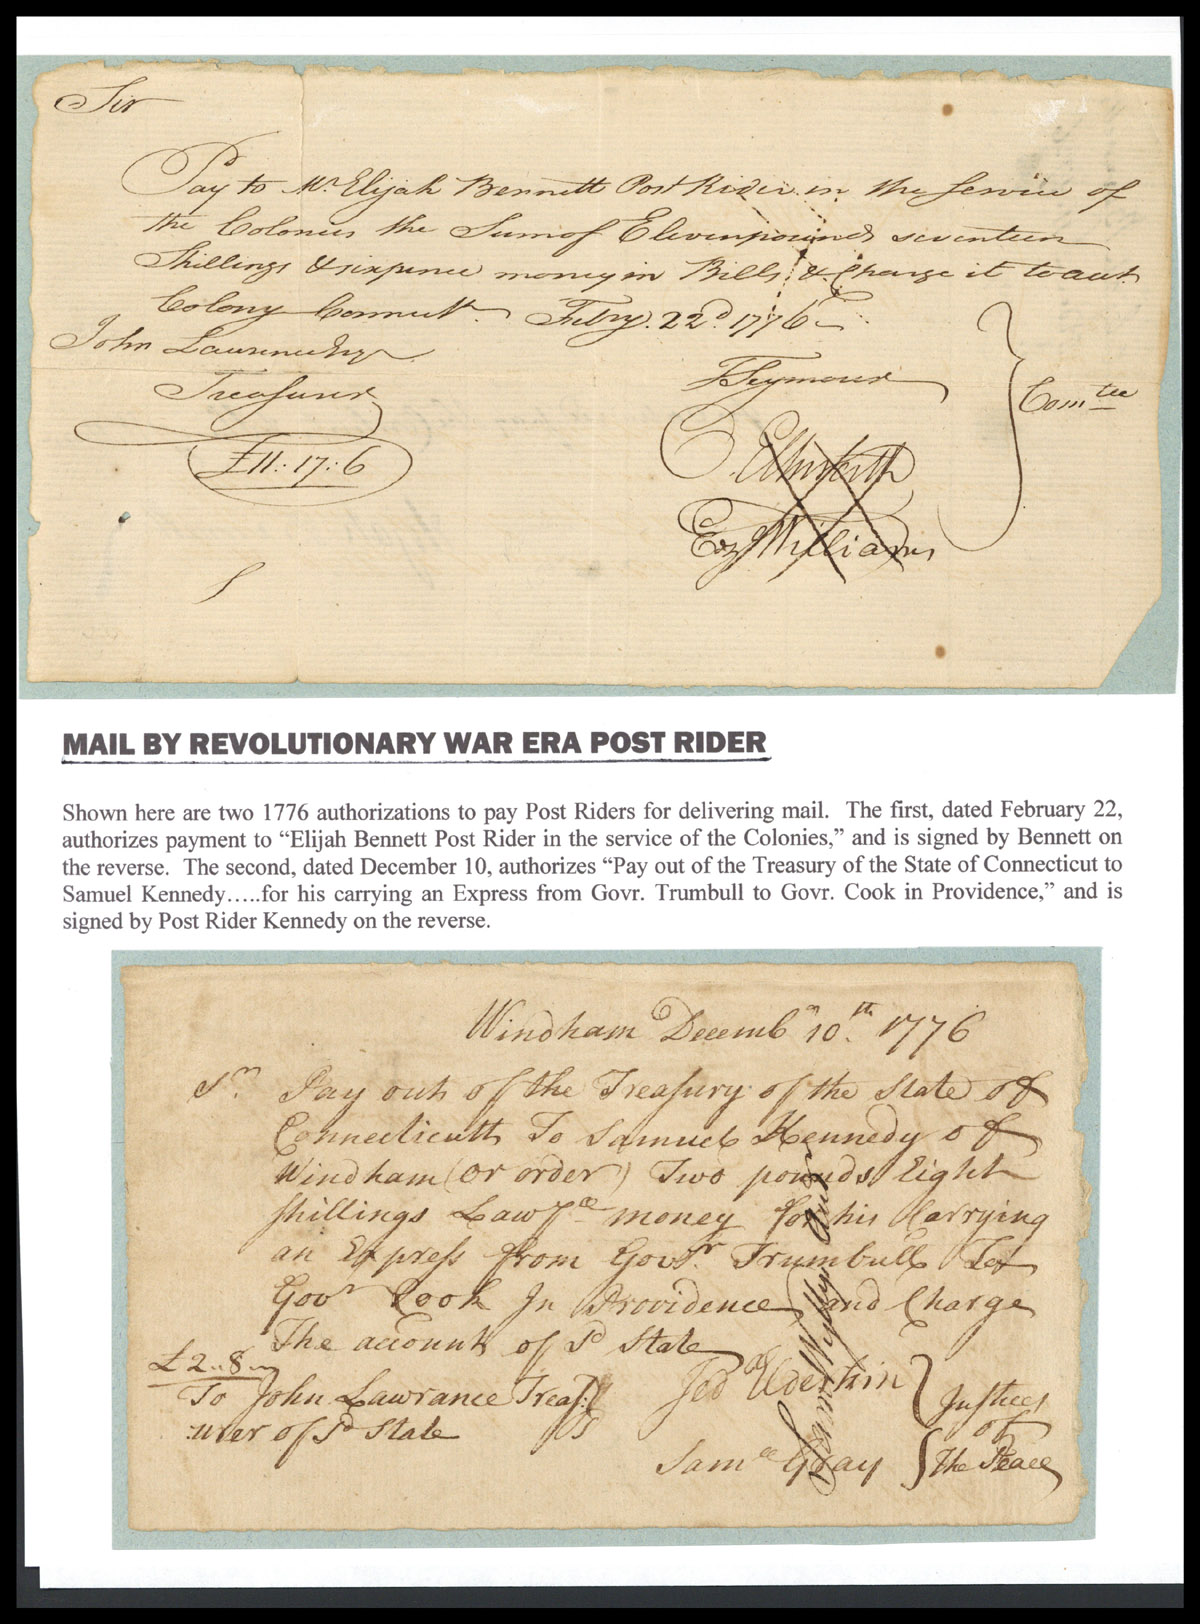 Sir
Pay to Mr. Elijah Bennett Post Rider in the Service of
the Colonies the Sum of Eleven pounds seventeen
Shillings & sixpence money in Bills & Charge it to act.
Colony Connectt. Febry. 22d 1776
John Lawrence Esqr
Treasurer
£11:17:6
T Seymour
O Ellsworth
Ez Williams
Comtee
MAIL BY REVOLUTIONARY WAR ERA POST RIDER
Shown here are two 1776 authorizations to pay Post Riders for delivering mail. The first, dated February 22,
authorizes payment to “Elijah Bennett Post Rider in the service of the Colonies,” and is signed by Bennett on
the reverse. The second, dated December 10, authorizes “Pay out of the Treasury of the State of Connecticut to
Samuel Kennedy…..for his carrying an Express from Govr. Trumbull to Govr. Cook in Providence,” and is
signed by Post Rider Kennedy on the reverse.
Windham Decembr 10th. 1776
Sr. Pay out of the Treasury of the State of
Connecticutt To Samuel Kennedy of
Windham (or order) Two pounds Eight
shillings Lawfll money for his Carrying
an Express from Govr. Trumbull To
Govr Cook In Providence and Charge
The account of Sd State
£2..8
To John Lawrance Treas
urer of Sd State
Jedh Elderkin
Saml Gray
Justices
of
the Peace